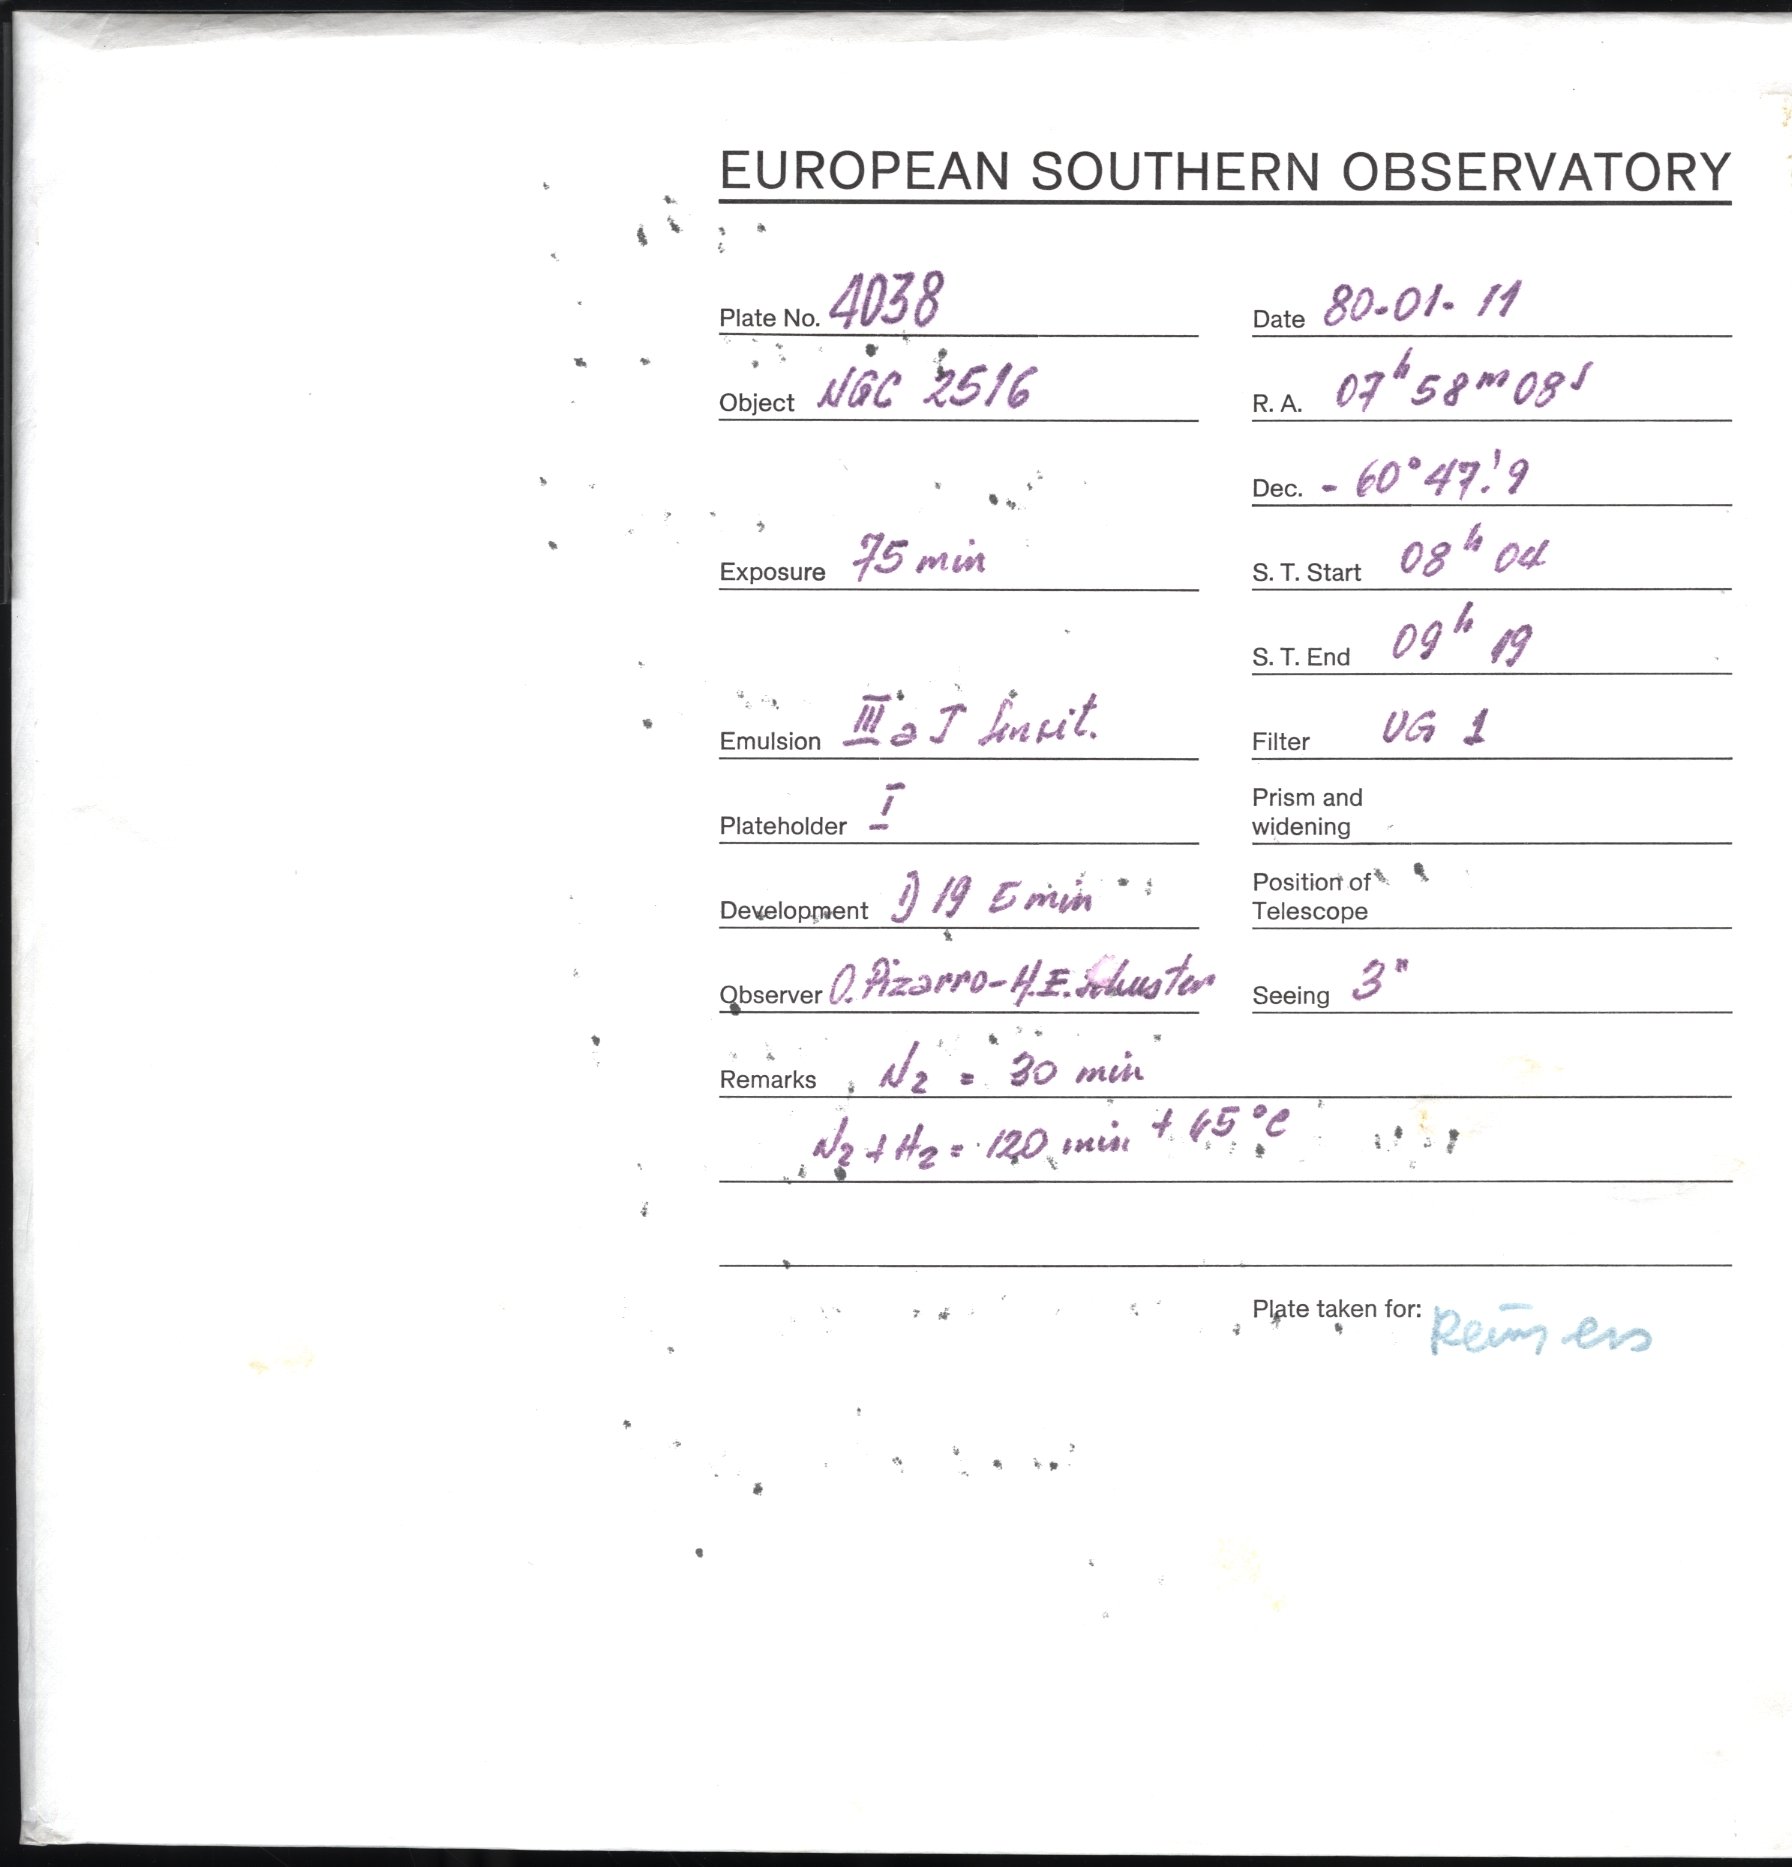 EUROPEAN SOUTHERN OBSERVATORY
Plate No. 4038
Date 80-01-11
Object NGC 2516
R. A. 07h 58m 08s
Dec. - 60° 47.'9
Exposure 75 min
S. T. Start 08h 04
S. T. End 09h 19
Emulsion III a J Sensit.
Filter UG 1
Plateholder I
Prism and
widening
Development D 19 5 min
Position of
Telescope
Observer O. Pizarro - H.E. Schuster
Seeing 3"
Remarks N2 = 30 min
N2 + H2 = 120 min + 65°C
Plate taken for: Reimers